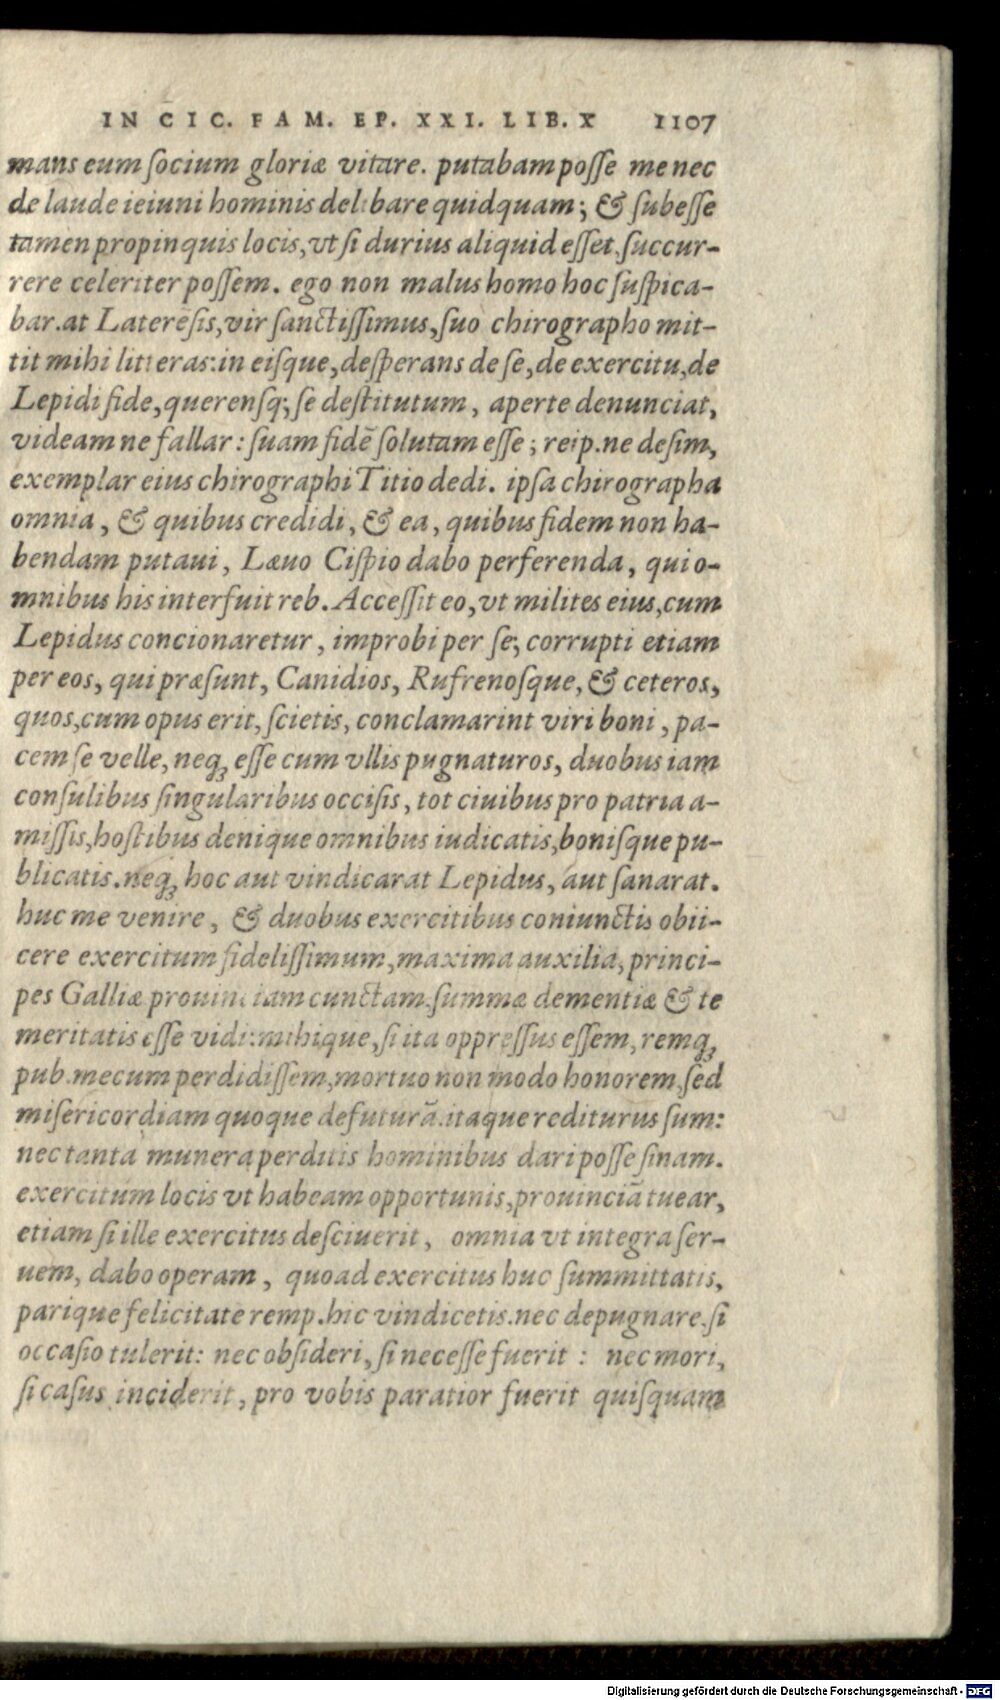 IN CIC. FAM. EP. XXI. LIB. X 1107
mans eum socium gloriæ vitare. putabam posse me nec
de laude ieiuni hominis delibare quidquam; & subesse
tamen propinquis locis, vt si durius aliquid esset, succur-
rere celeriter possem. ego non malus homo hoc suspica-
bar. at Laterēsis, vir sanctissimus, suo chirographo mit-
tit mihi litteras: in eisque, desperans de se, de exercitu, de
Lepidi fide, querensq; se destitutum, aperte denunciat,
videam ne fallar: suam fidē solutam esse; reip. ne desim,
exemplar eius chirographi Titio dedi. ipsa chirographa
omnia, & quibus credidi, & ea, quibus fidem non ha-
bendam putaui, Læuo Cispio dabo perferenda, qui o-
mnibus his interfuit reb. Accessit eo, vt milites eius, cum
Lepidus concionaretur, improbi per se; corrupti etiam
per eos, qui præsunt, Canidios, Rufrenosque, & ceteros,
quos, cum opus erit, scietis, conclamarint viri boni, pa-
cem se velle, neq; esse cum vllis pugnaturos, duobus iam
consulibus singularibus occisis, tot ciuibus pro patria a-
missis, hostibus denique omnibus iudicatis, bonisque pu-
blicatis. neq; hoc aut vindicarat Lepidus, aut sanarat.
huc me venire, & duobus exercitibus coniunctis obii-
cere exercitum fidelissimum, maxima auxilia, princi-
pes Galliæ prouinciam cunctam, summæ dementiæ & te
meritatis esse vidi: mihique, si ita oppressus essem, remq;
pub. mecum perdidissem, mortuo non modo honorem, sed
misericordiam quoque defuturā. itaque rediturus sum:
nec tanta munera perditis hominibus dari posse sinam.
exercitum locis vt habeam opportunis, prouinciā tuear,
etiam si ille exercitus desciuerit, omnia vt integra ser-
uem, dabo operam, quoad exercitus huc summittatis,
parique felicitate remp. hic vindicetis. nec depugnare, si
occasio tulerit: nec obsideri, si necesse fuerit: nec mori,
si casus inciderit, pro vobis paratior fuerit quisquam
Digitalisierung gefördert durch die Deutsche Forschungsgemeinschaft - DFG